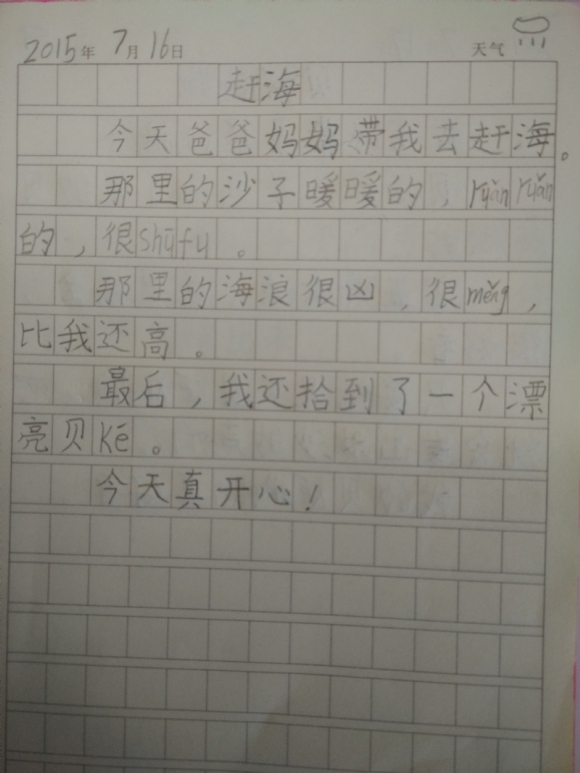 2015年 7月 16日 天气
赶海
今天爸爸妈妈带我去赶海。
那里的沙子暖暖的，ruǎn ruǎn
的，很shūfu。
那里的海浪很凶，很měng，
比我还高。
最后，我还拾到了一个漂
亮贝Ké。
今天真开心！